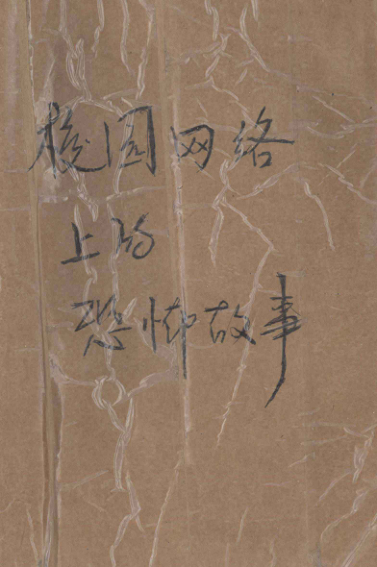 校园网络
上的
恐怖故事